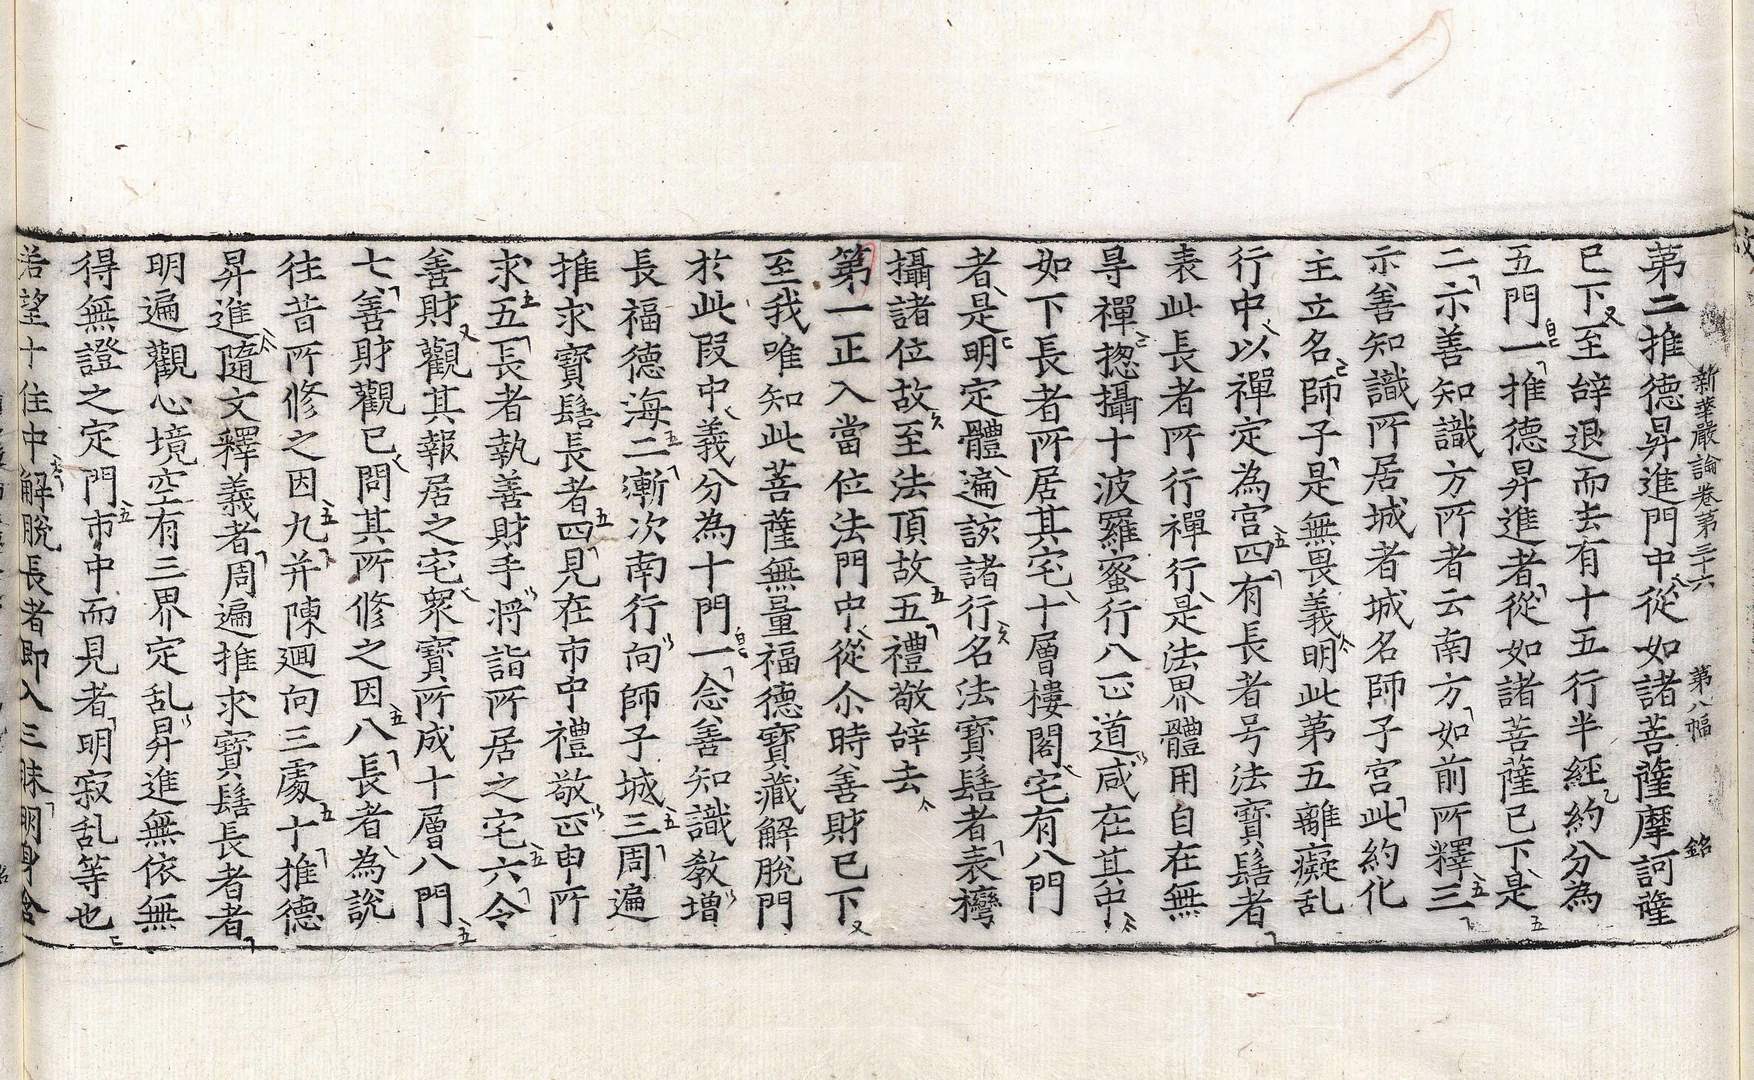 新華嚴論卷第三十六 第八幅 銘
第二推德昇進門中從如諸菩薩摩訶薩
已下至辝退而去有十五行半経約分為
五門一推德昇進者從如諸菩薩已下是
二示善知識方所者云南方如前所釋三
示善知識所居城者城名師子宫此約化
主立名師子是無畏義明此第五離癡乱
行中以禪定為宫四有長者号法寶髻者
表此長者所行禪行是法界體用自在無
㝵禪揔攝十波羅蜜行八正道咸在其中
如下長者所居其宅十層樓閣宅有八門
者是明定體遍該諸行名法寶髻者表
攝諸位故至法頂故五禮敬辝去
第一正入當位法門中從尒時善財已下
至我唯知此菩薩無量福德寶藏解脫門
於此叚中義分為十門一念善知識教增
長福德海二漸次南行向師子城三周遍
推求寶髻長者四見在市中禮敬正申所
求五長者執善財手將詣所居之宅六令
善財觀其報居之宅衆寶所成十層八門
七善財觀已問其所修之因八長者為説
往昔所修之因九并陳廻向三處十推德
昇進隨文釋義者周遍推求寶髻長者者
明遍觀心境空有三界定乱昇進無依無
得無證之定門市中而見者明寂乱等也
若望十住中解脫長者即入三昧明身含